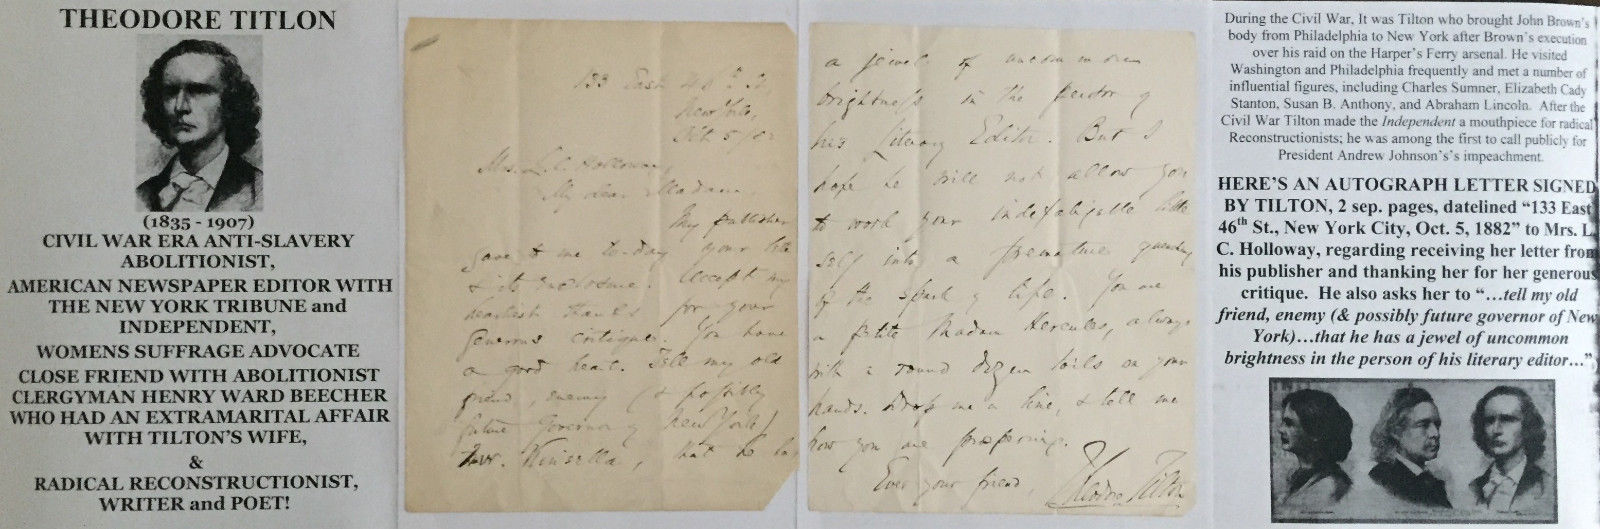 THEODORE TITLON
(1835 - 1907)
CIVIL WAR ERA ANTI-SLAVERY
ABOLITIONIST,
AMERICAN NEWSPAPER EDITOR WITH
THE NEW YORK TRIBUNE and
INDEPENDENT,
WOMENS SUFFRAGE ADVOCATE
CLOSE FRIEND WITH ABOLITIONIST
CLERGYMAN HENRY WARD BEECHER
WHO HAD AN EXTRAMARITAL AFFAIR
WITH TILTON'S WIFE,
&
RADICAL RECONSTRUCTIONIST,
WRITER and POET!
133 East 46th St,
New York,
Oct 5/82
Mrs. L. C. Holloway,
My dear Madam,
My publisher
gave to me to-day your letter
& its enclosure. Accept my
heartiest thanks for your
generous critique. You have
a good heart. Tell my old
friend, enemy (& possibly
future Governor of New York)
Mr. Kinsella, that he has
a jewel of uncommon
brightness in the person of
his Literary Editor. But I
hope he will not allow you
to work your indefatigable little
self into a premature quenching
of the spark of life. You are
a petite Madam Hercules, always
with a round dozen toils on your
hands. Drop me a line, & tell me
how you are prospering.
Ever your friend,
Theodore Tilton
During the Civil War, It was Tilton who brought John Brown's
body from Philadelphia to New York after Brown's execution
over his raid on the Harper's Ferry arsenal. He visited
Washington and Philadelphia frequently and met a number of
influential figures, including Charles Sumner, Elizabeth Cady
Stanton, Susan B. Anthony, and Abraham Lincoln. After the
Civil War Tilton made the Independent a mouthpiece for radical
Reconstructionists; he was among the first to call publicly for
President Andrew Johnson's's impeachment.
HERE'S AN AUTOGRAPH LETTER SIGNED
BY TILTON, 2 sep. pages, datelined "133 East
46th St., New York City, Oct. 5, 1882" to Mrs. L.
C. Holloway, regarding receiving her letter from
his publisher and thanking her for her generous
critique. He also asks her to "…tell my old
friend, enemy (& possibly future governor of New
York)…that he has a jewel of uncommon
brightness in the person of his literary editor…"